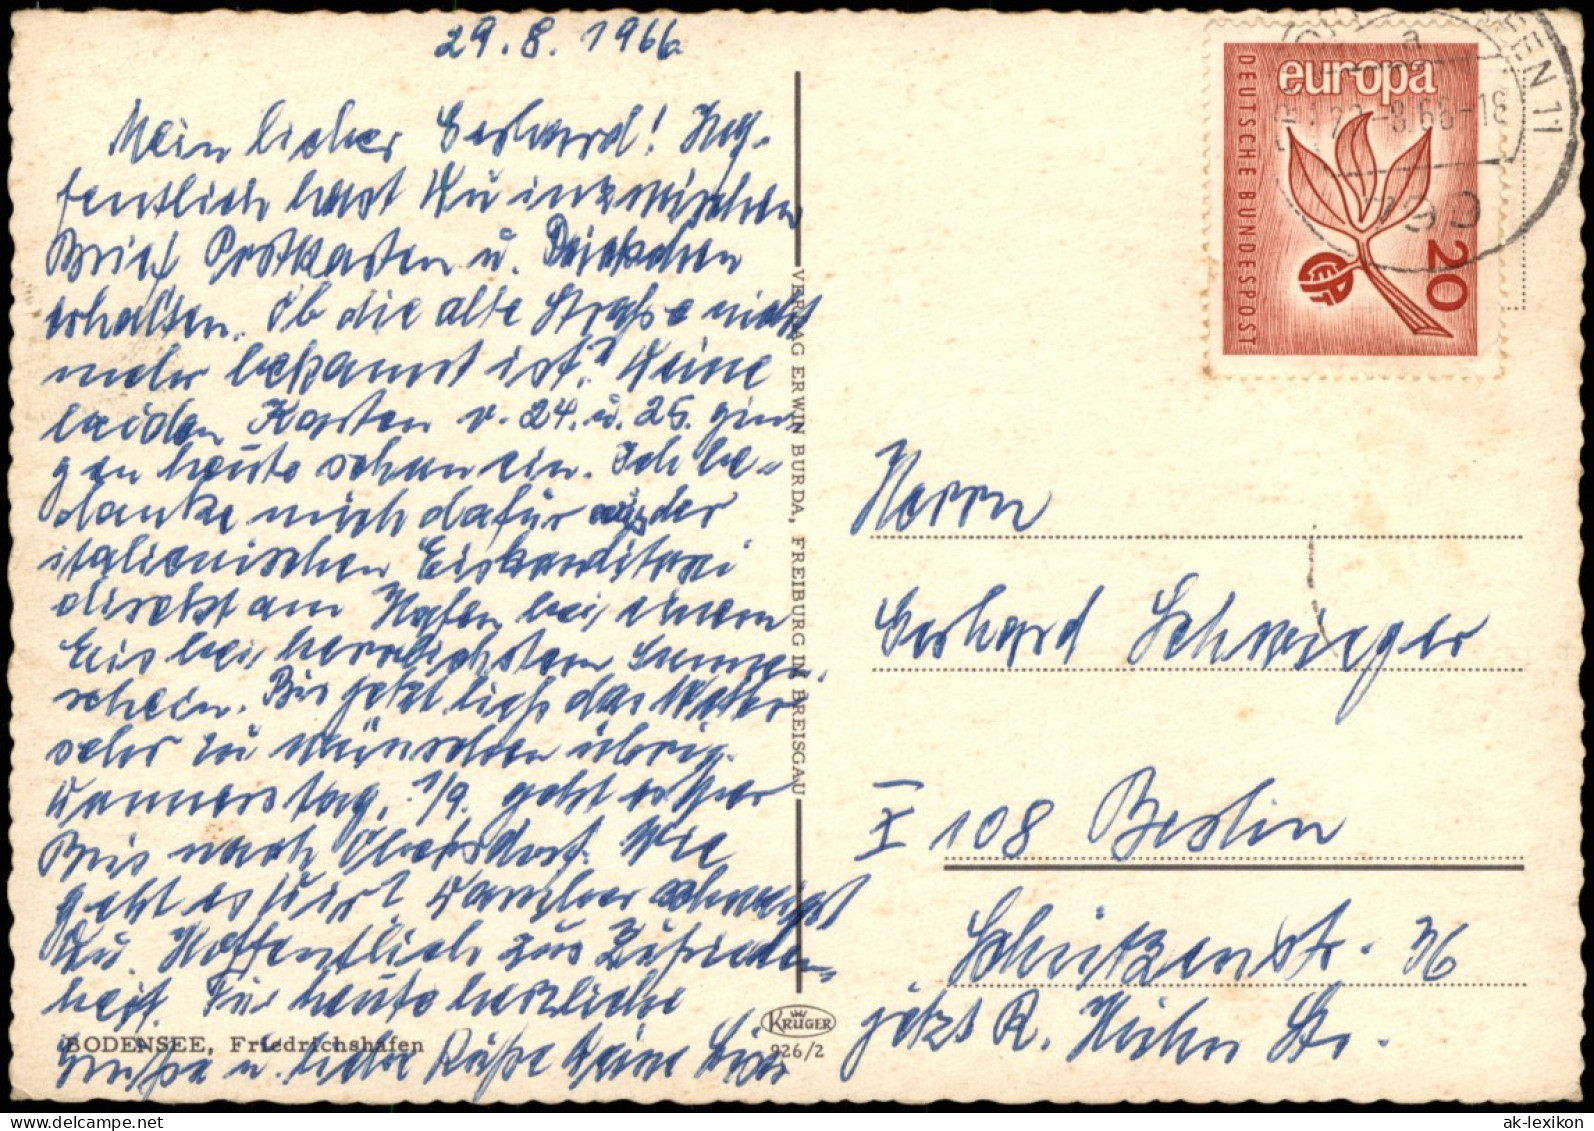 29.8.1966
Mein lieber Gerhard! Hof-
fentlich hast Du inzwischen
Brief Postkarten u. Päckchen
erhalten. Ob die alte Straße nicht
mehr bekannt ist? Deine
beiden Karten v. 24. u. 25. gin-
gen heute schon ein. Ich be-
danke mich dafür aus der
italienischen Eiskonditorei
direkt am Hafen bei einem
Eis bei herrlichstem Sonnen-
schein. Bis jetzt ließ das Wetter
sehr zu wünschen übrig.
Donnerstag, 1/9. geht es per
Bus nach Oberstdorf. Wie
geht es Dir? Darüber schweigst
Du. Hoffentlich zur Zufrieden-
heit. Für heute herzliche
Grüße u. liebe Küsse Deine
BODENSEE, Friedrichshafen
VERLAG ERWIN BURDA, FREIBURG IM BREISGAU
KRÜGER
926/2
europa
DEUTSCHE BUNDESPOST
20
CEPT
HAFEN 11
a
-8.66-18
Herrn
Gerhard Schwieger
X 108 Berlin
Schützenstr. 36
jetzt R. Str.
ak-lexikon